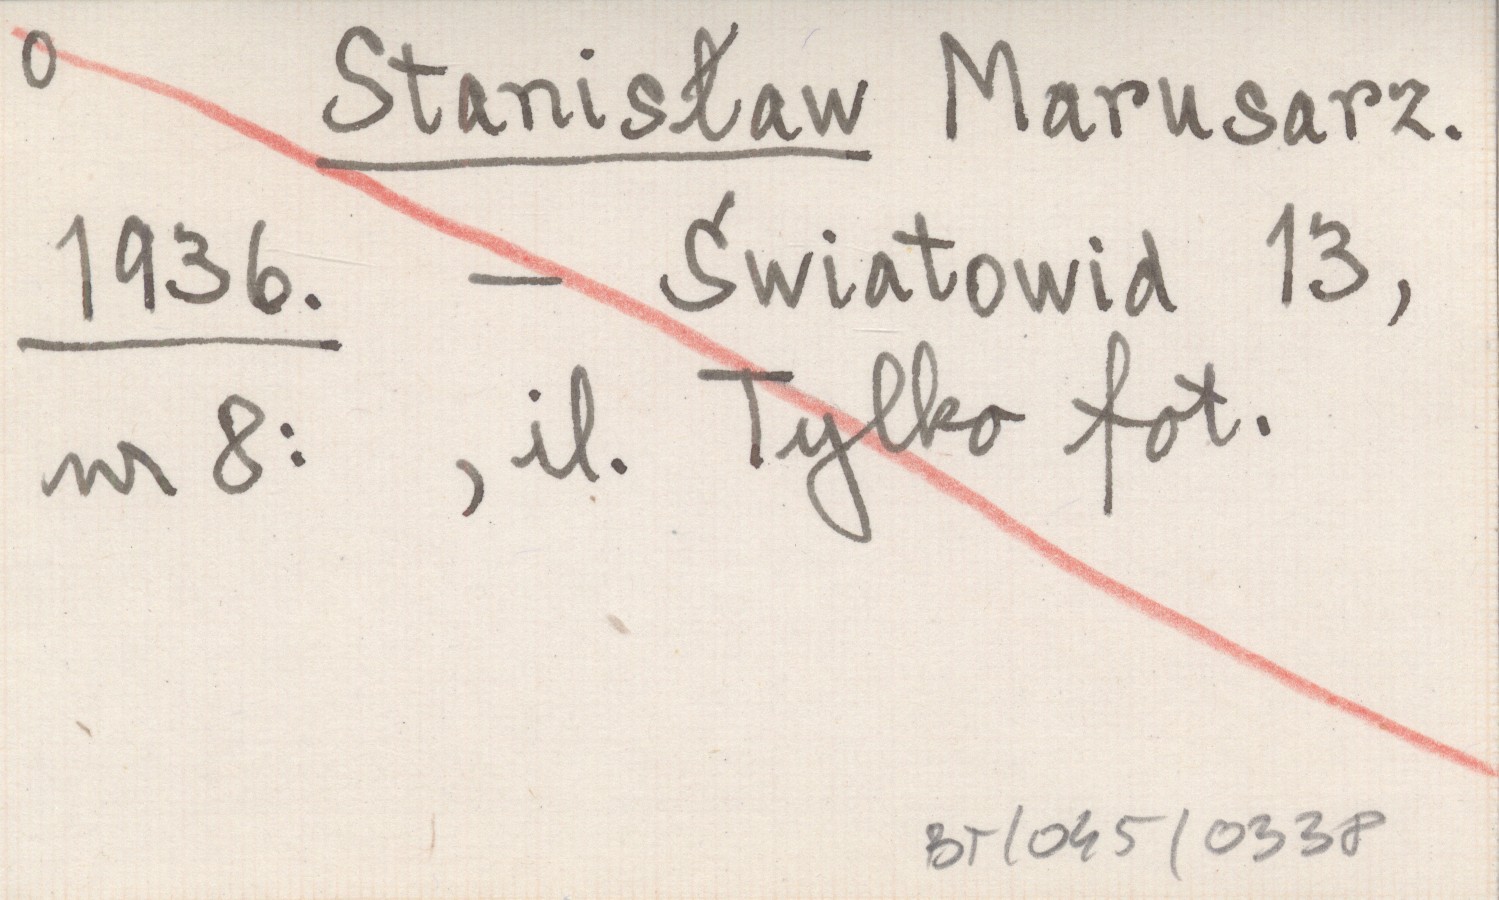 0 Stanisław Marusarz.
1936. — Światowid 13,
nr 8: , il. Tylko fot.
BT/045/0338